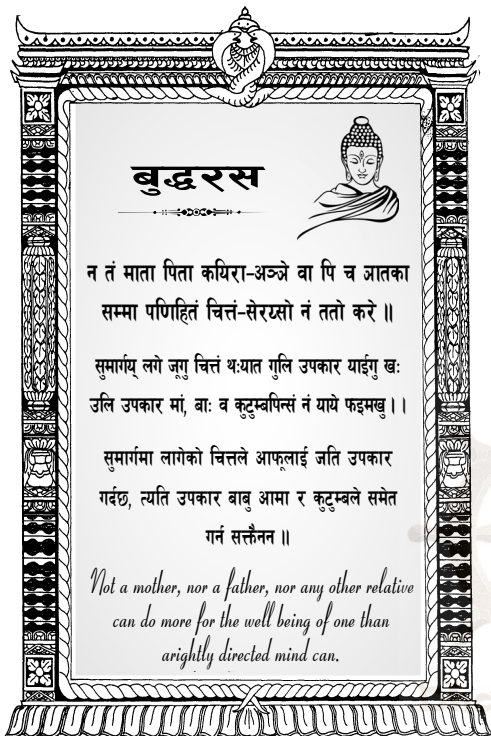 बुद्धरस
न तं माता पिता कयिरा-अञ्ञे वा पि च ञातका
सम्मा पणिहितं चित्तं-सेय्यसो नं ततो करे ॥
सुमार्गय् लगे जूगु चित्तं थःयात गुलि उपकार याईगु खः
उलि उपकार मां, बाः व कुटुम्बपिन्सं नं याये फइमखु।।
सुमार्गमा लागेको चित्तले आफूलाई जति उपकार
गर्दछ, त्यति उपकार बाबु आमा र कुटुम्बले समेत
गर्न सक्तैनन ॥
Not a mother, nor a father, nor any other relative
can do more for the well being of one than
arightly directed mind can.